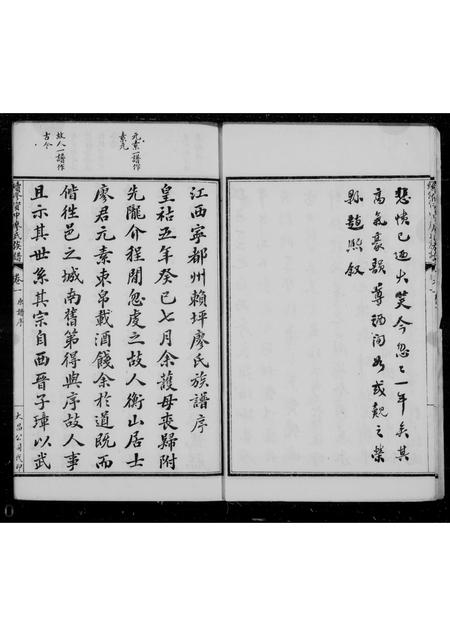 悲愴已迺大笑今忽〻一年矣其
高氣豪韻尊酒間如或覩之榮
縣趙熙敘
江西寧都州賴坪廖氏族譜序
皇祜五年癸巳七月余護母喪歸附
先隴介程間忽虔之故人衡山居士
廖君元素束帛載酒餞余於道既而
偕徃邑之城南舊第得與序故人事
且示其世系其宗自西晉子璋以武
元素一譜作
素元
故人一譜作
古今
續修資中廖氏族譜
卷一
原譜序
大昌公司代印